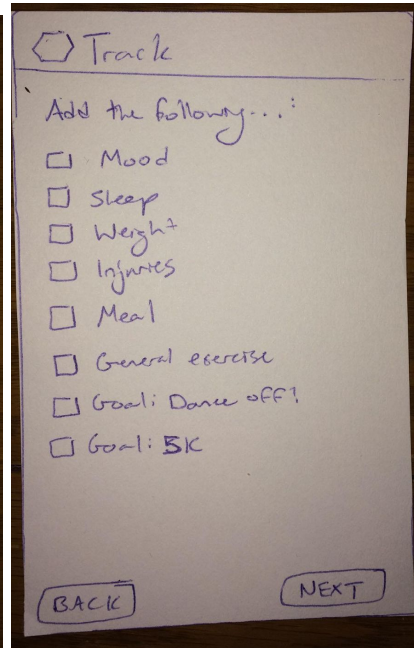 Track
Add the following...:
Mood
Sleep
Weight
Injuries
Meal
General exercise
Goal: Dance off!
Goal: 5K
BACK
NEXT